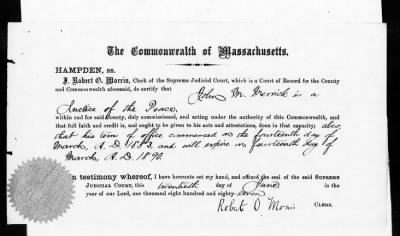 The Commonwealth of Massachusetts.
HAMPDEN, SS.
I, Robert O. Morris, Clerk of the Supreme Judicial Court, which is a Court of Record for the County
and Commonwealth aforesaid, do certify that John M. Merrick is a
Justice of the Peace,
within and for said County, duly commissioned, and acting under the authority of this Commonwealth, and
that full faith and credit is, and ought to be given to his acts and attestations, done in that capacity; also,
that his term of office commenced on the fourteenth day of
March, A.D. 1883, and will expire on fourteenth day of
March, A.D. 1890.
In testimony whereof, I have hereunto set my hand, and affixed the seal of the said SUPREME
JUDICIAL COURT, this twentieth day of June in the
year of our Lord, one thousand eight hundred and eighty-seven
Robert O. Morris CLERK.